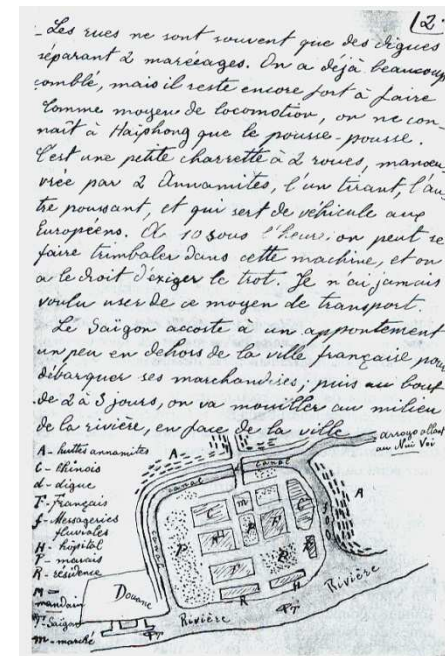 (2
- Les rues ne sont souvent que des digues
séparant 2 marécages. On a déjà beaucoup
comblé, mais il reste encore fort à faire
Comme moyen de locomotion, on ne con-
naît à Haïphong que le pousse-pousse.
C'est une petite charrette à 2 roues, manœu-
vrée par 2 Annamites, l'un tirant, l'au-
tre poussant, et qui sert de véhicule aux
Européens. À 10 sous l'heure, on peut se
faire trimbaler dans cette machine, et on
a le droit d'exiger le trot. Je n'ai jamais
voulu user de ce moyen de transport.
Le Saïgon accoste à un appontement
un peu en dehors de la ville française pour
débarquer ses marchandises; puis au bout
de 2 à 3 jours, on va mouiller au milieu
de la rivière, en face de la ville
A - huttes annamites
C - chinois
d - digue
F - Français
f - Messageries
fluviales
H - hôpital
P - marais
R - résidence
M =
mandarin
Saïgon
m - marché
arroyo allant
au Nui Voi
A
A
canal
canal
canal
m
C
Douane
R
H
Rivière
Rivière